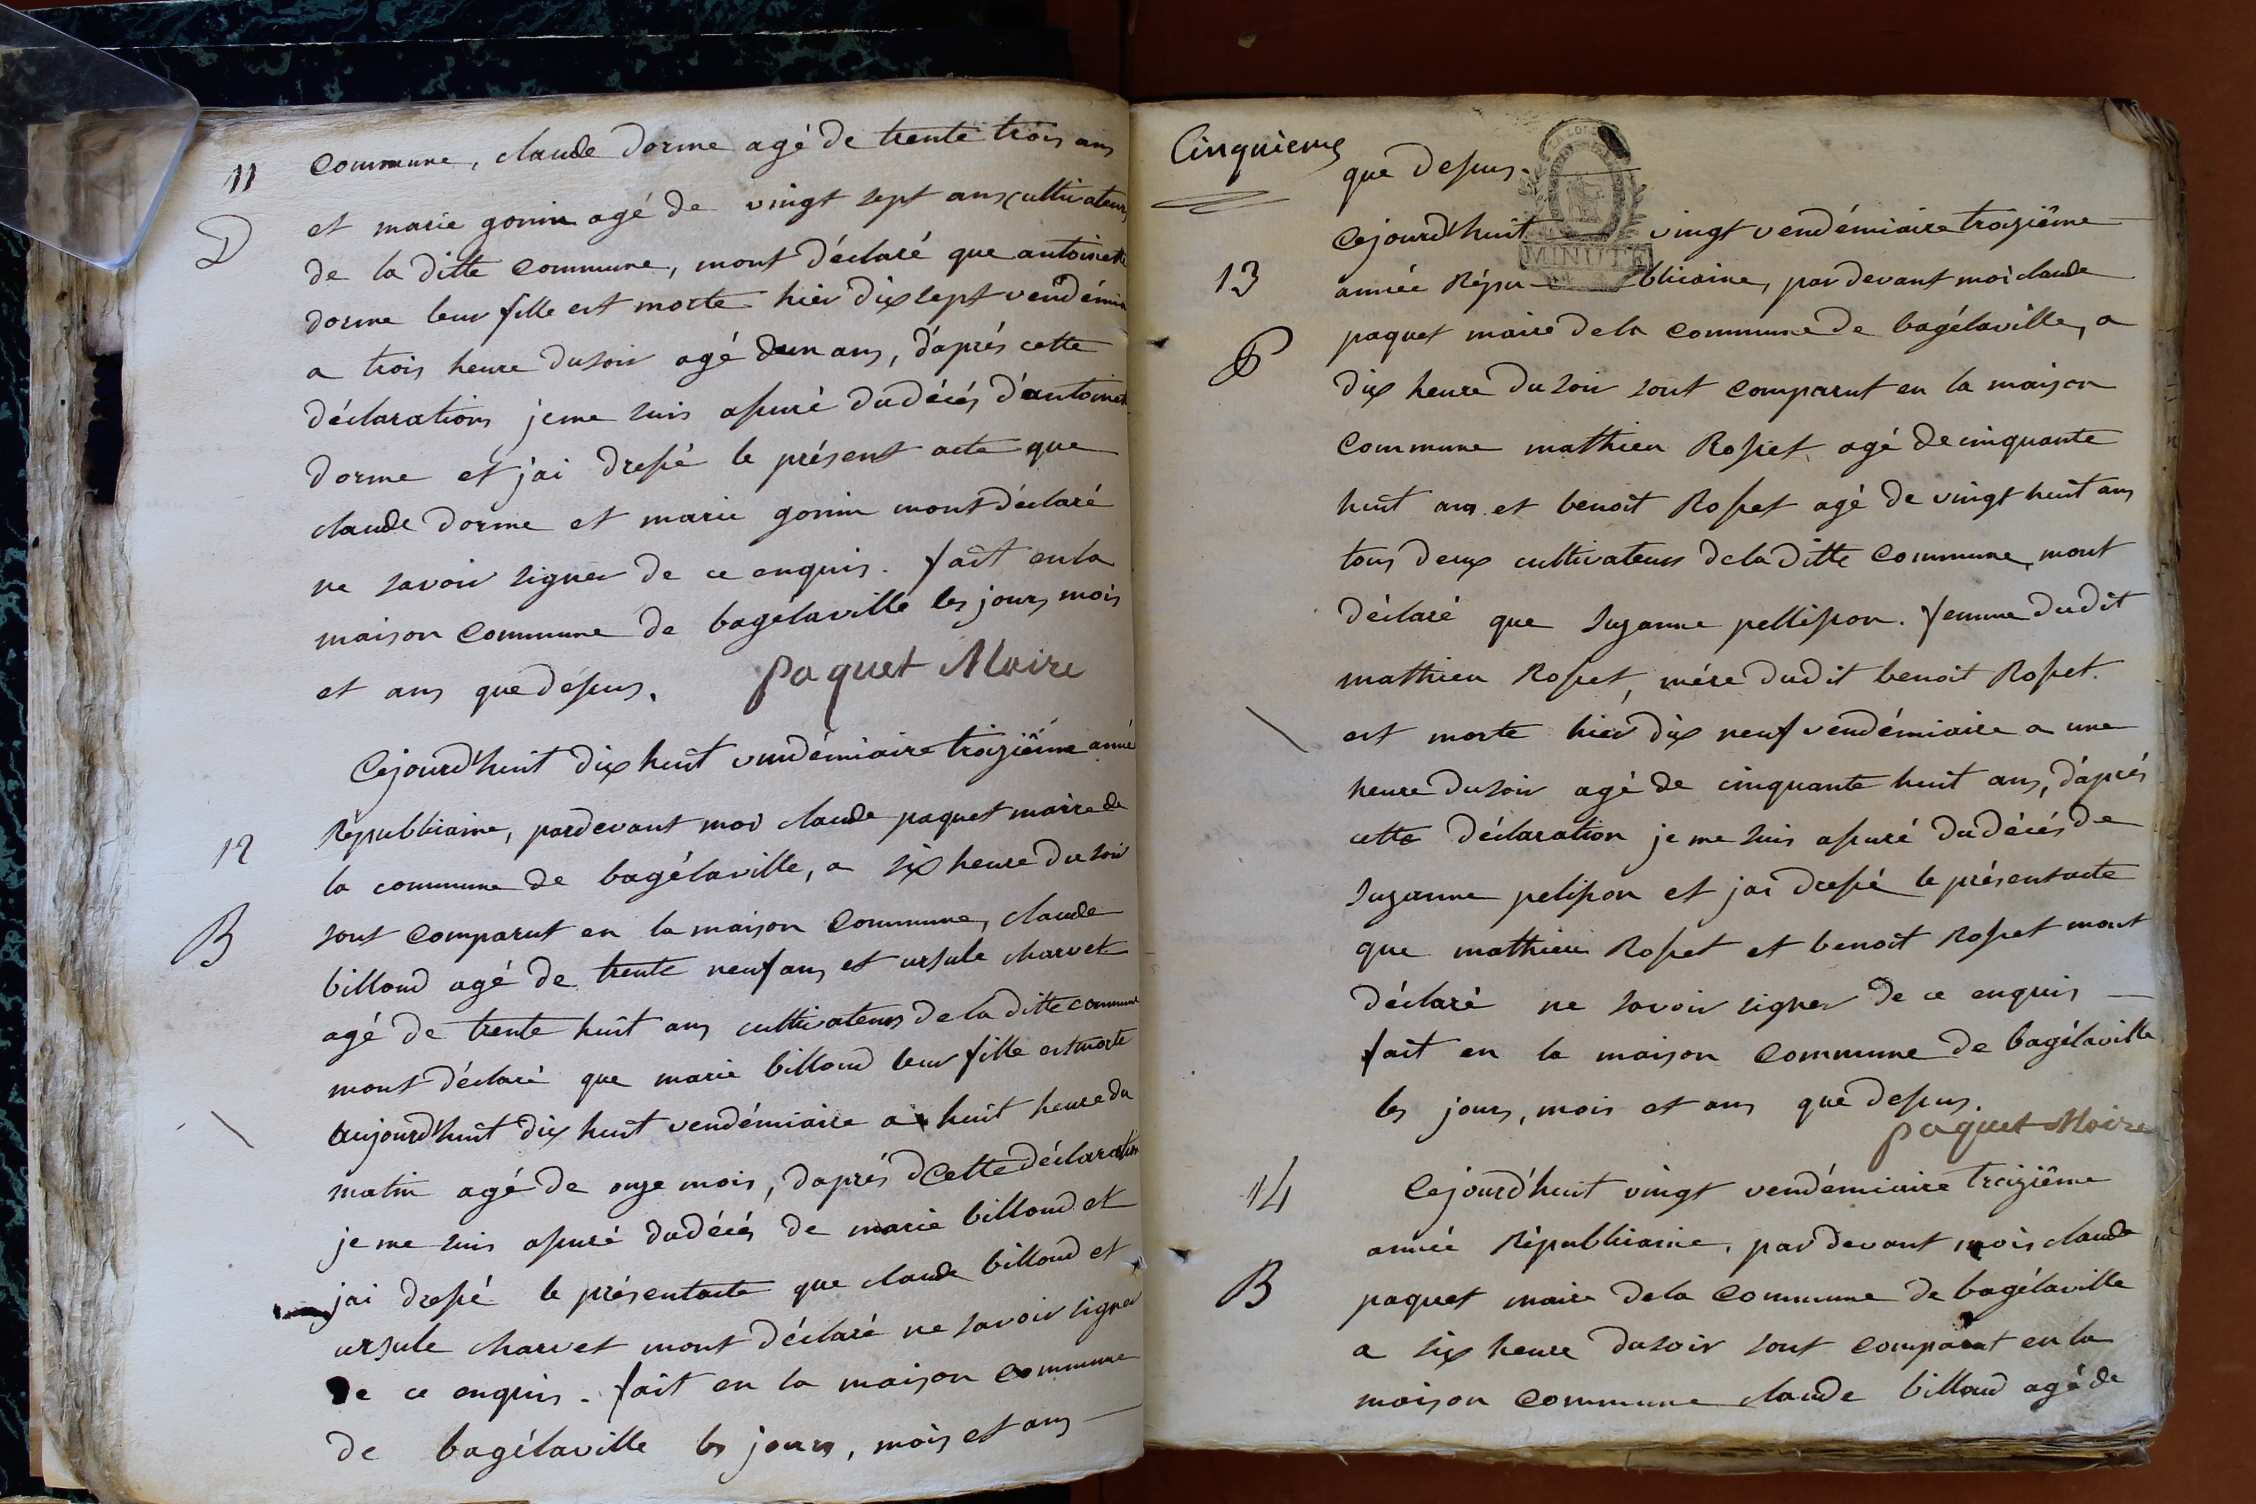 11
D
commune, claude dorme agé de trente trois ans
et marie gonin agé de vingt sept ans cultivateurs
de la ditte commune, mont déclaré que antoinette
dorme leur fille est morte hier dix sept vendémiai
a trois heure du soir agé dun ans, d'aprés cette
déclarations je me suis assuré du décés d'antoinette
dorme et j'ai dressé le présent acte que
claude dorme et marie gonin mont déclaré
ne savoir signer de ce enquis. fait en la
maison commune de bagélaville les jours mois
et ans que dessus.
paquet Maire
12
B
Cejourd'huit dix huit vendémiaire troiziême année
Républicaine, pardevant moi claude paquet maire de
la commune de bagélaville, a six heure du soir
sont comparut en la maison commune, claude
billoud agé de trente neuf ans et ursule charvet
agé de trente huit ans cultivateurs de la ditte commune
mont déclaré que marie billoud leur fille est morte
aujourd'huit dix huit vendémiaire a huit heure du
matin agé de onze mois, d'aprés cette déclaration
je me suis assuré du décés de marie billoud et
jai dressé le présent acte que claude billoud et
ursule charvet mont déclaré ne savoir signer
de ce enquis. fait en la maison commune
de bagélaville les jours, mois et ans
Cinquieme
que dessus.
MINUTE
13
Cejourd'huit vingt vendémiaire troiziême
année Répu-blicaine, par devant moi claude
paquet maire de la commune de bagélaville, a
dix heure du soir sont comparut en la maison
commune mathieu Rosset agé de cinquante
huit ans et benoit Rosset agé de vingt huit ans
tous deux cultivateurs de la ditte commune, mont
déclaré que suzanne pellisson. femme dudit
mathieu Rosset, mére dudit benoit Rosset.
est morte hier dix neuf vendémiaire a une
heure du soir agé de cinquante huit ans, d'aprés
cette déclaration je me suis assuré du décés de
suzanne pelisson et jai dressé le présent acte
que mathieu Rosset et benoit Rosset mont
déclaré ne savoir signer de ce enquis
fait en la maison commune de bagélaville
les jours, mois et ans que dessus.
paquet Maire
14
B
Cejourd'huit vingt vendémiaire troiziême
année Républicaine, par devant mois claude
paquet maire de la commune de bagélaville
a six heure du soir sont comparut en la
maison commune claude billoud agé de